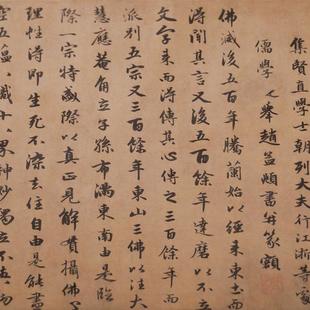 集賢直學士朝列大夫行江浙等處
儒學提舉趙孟頫書并篆額
佛滅後五百年騰蘭始以經來東土而
得聞其言又後五百餘年達磨以不立
文字來而得傳其心傳之三百餘年而
派別五宗又三百餘年東山三佛以汪大
慧應菴角立子孫布滿東南由是臨
際一宗特盛際以真正見解貫攝佛
理性得即生死不染去住自由是能盡
空五蘊滅十八界神妙獨立不